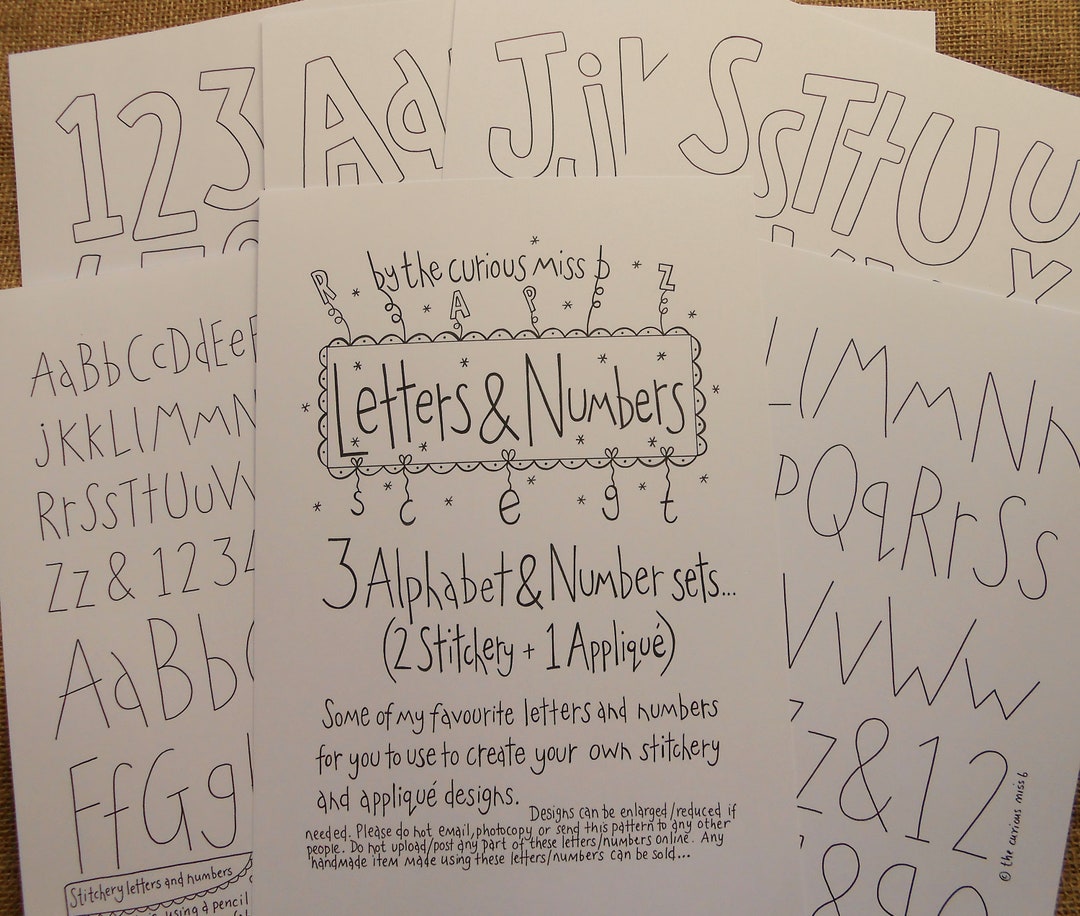 123
Ad
J.j
SsTtUu
by the curious miss b
R A P Z
Letters & Numbers
s c e g t
3 Alphabet & Number sets...
(2 Stitchery + 1 Appliqué)
Some of my favourite letters and numbers
for you to use to create your own stitchery
and appliqué designs.
Designs can be enlarged/reduced if
needed. Please do not email, photocopy or send this pattern to any other
people. Do not upload/post any part of these letters/numbers online. Any
handmade item made using these letters/numbers can be sold...
AaBbCcDdEeF
jKkLlMmN
RrSsTtUuVv
Zz & 1234
AaBb
FfGg
Stitchery letters and numbers
using a pencil
lMmN
QqRrSs
VvWw
Z&12
&9
© the curious miss b